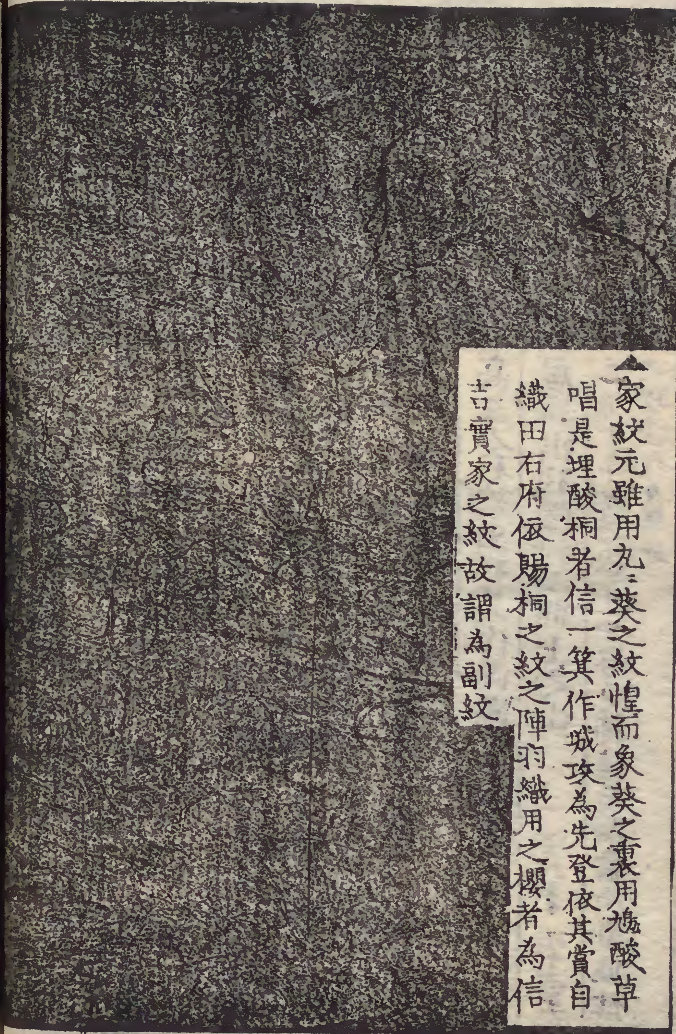 ▲家紋元雖用丸ニ葵之紋惶而象葵之裏用鳩酸草
唱是埋酸桐者信一箕作城攻為先登依其賞自
織田右府仮賜桐之紋之陣羽織用之櫻者為信
吉實家之紋故謂為副紋